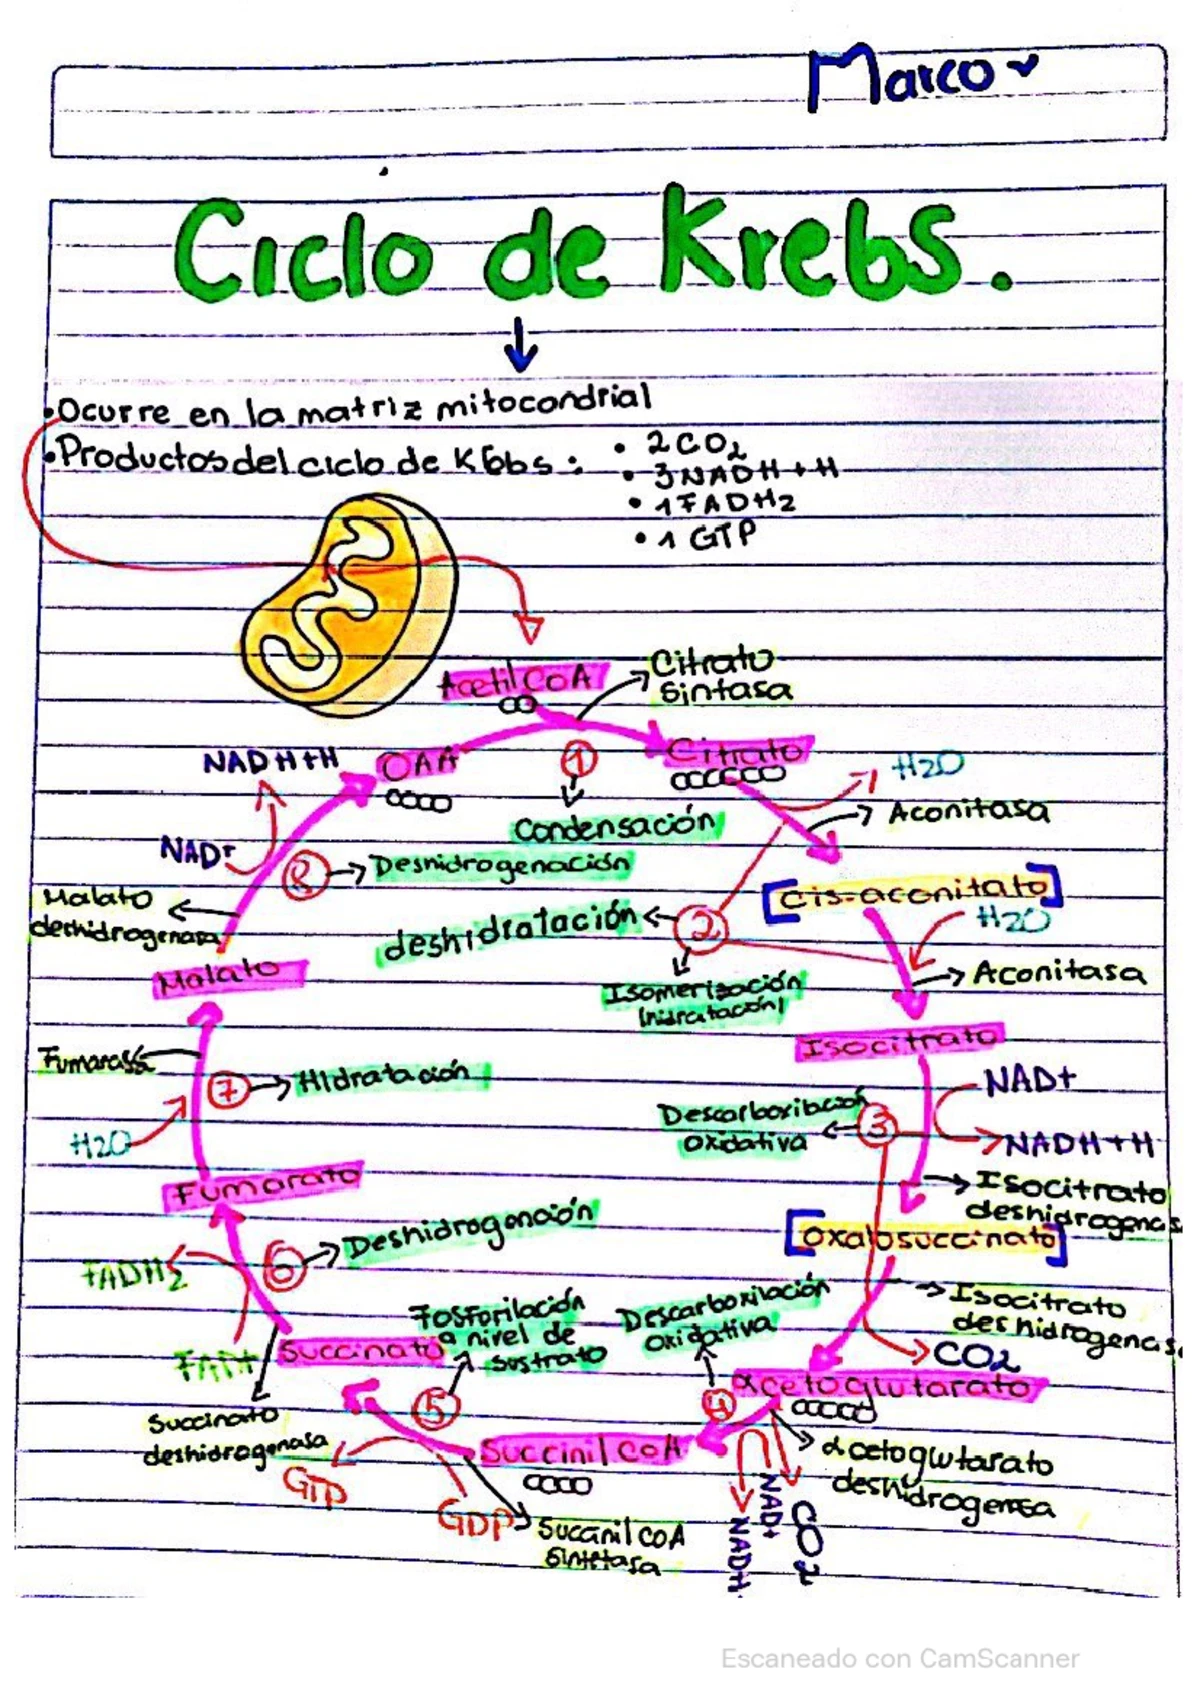 Marco
Ciclo de Krebs.
• Ocurre en la matriz mitocondrial
• Productos del ciclo de Krebs :
• 2CO2
• 3NADH + H
• 1FADH2
• 1 GTP
Acetil CoA
Citrato
sintasa
NADH+H
OAA
1
Citrato
H2O
Condensación
Aconitasa
NAD+
8
Deshidrogenación
Malato
deshidrogenasa
[cis-aconitato]
deshidratación
2
H2O
Malato
Isomerización
(hidratación)
Aconitasa
Isocitrato
Fumarasa
7
Hidratación
NAD+
H2O
Descarboxilación
oxidativa
3
NADH+H
Fumarato
Isocitrato
deshidrogenas
[oxalosuccinato]
6
Deshidrogención
FADH2
Fosforilación
a nivel de
sustrato
Descarboxilación
oxidativa
Isocitrato
deshidrogenas
FAD+
Succinato
CO2
α cetoglutarato
5
4
Succinato
deshidrogenasa
Succinil CoA
α cetoglutarato
deshidrogenasa
GTP
GDP
Succinil COA
Sintetasa
NADH
NAD+
CO2
Escaneado con CamScanner